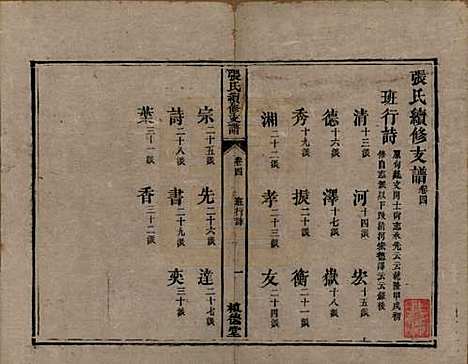 張氏續修支譜 卷四
班行詩
清 十三派 河 十四派 宏 十五派
德 十六派 澤 十七派 嶽 十八派
秀 十九派 振 二十派 衡 二十一派
湘 二十二派 孝 二十三派 友 二十四派
張氏續修支譜 卷四 班行詩 一
宗 二十五派 先 二十六派 達 二十七派
詩 二十八派 書 二十九派 奕 三十派
葉 三十一派 香 三十二派